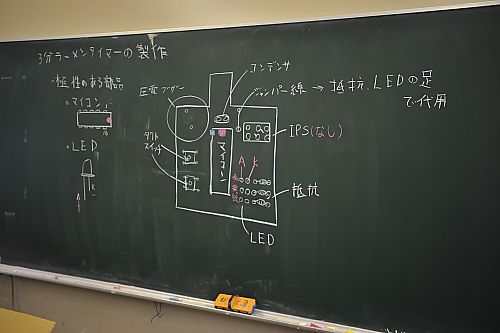 3分ラーメンタイマーの製作
・極性のある部品
・マイコン
・LED
A
K
圧電ブザー
コンデンサ
ジャンパー線 → 抵抗、LEDの足
で代用
タクト
スイッチ
マイコン
ISP(なし)
A K
抵抗
LED